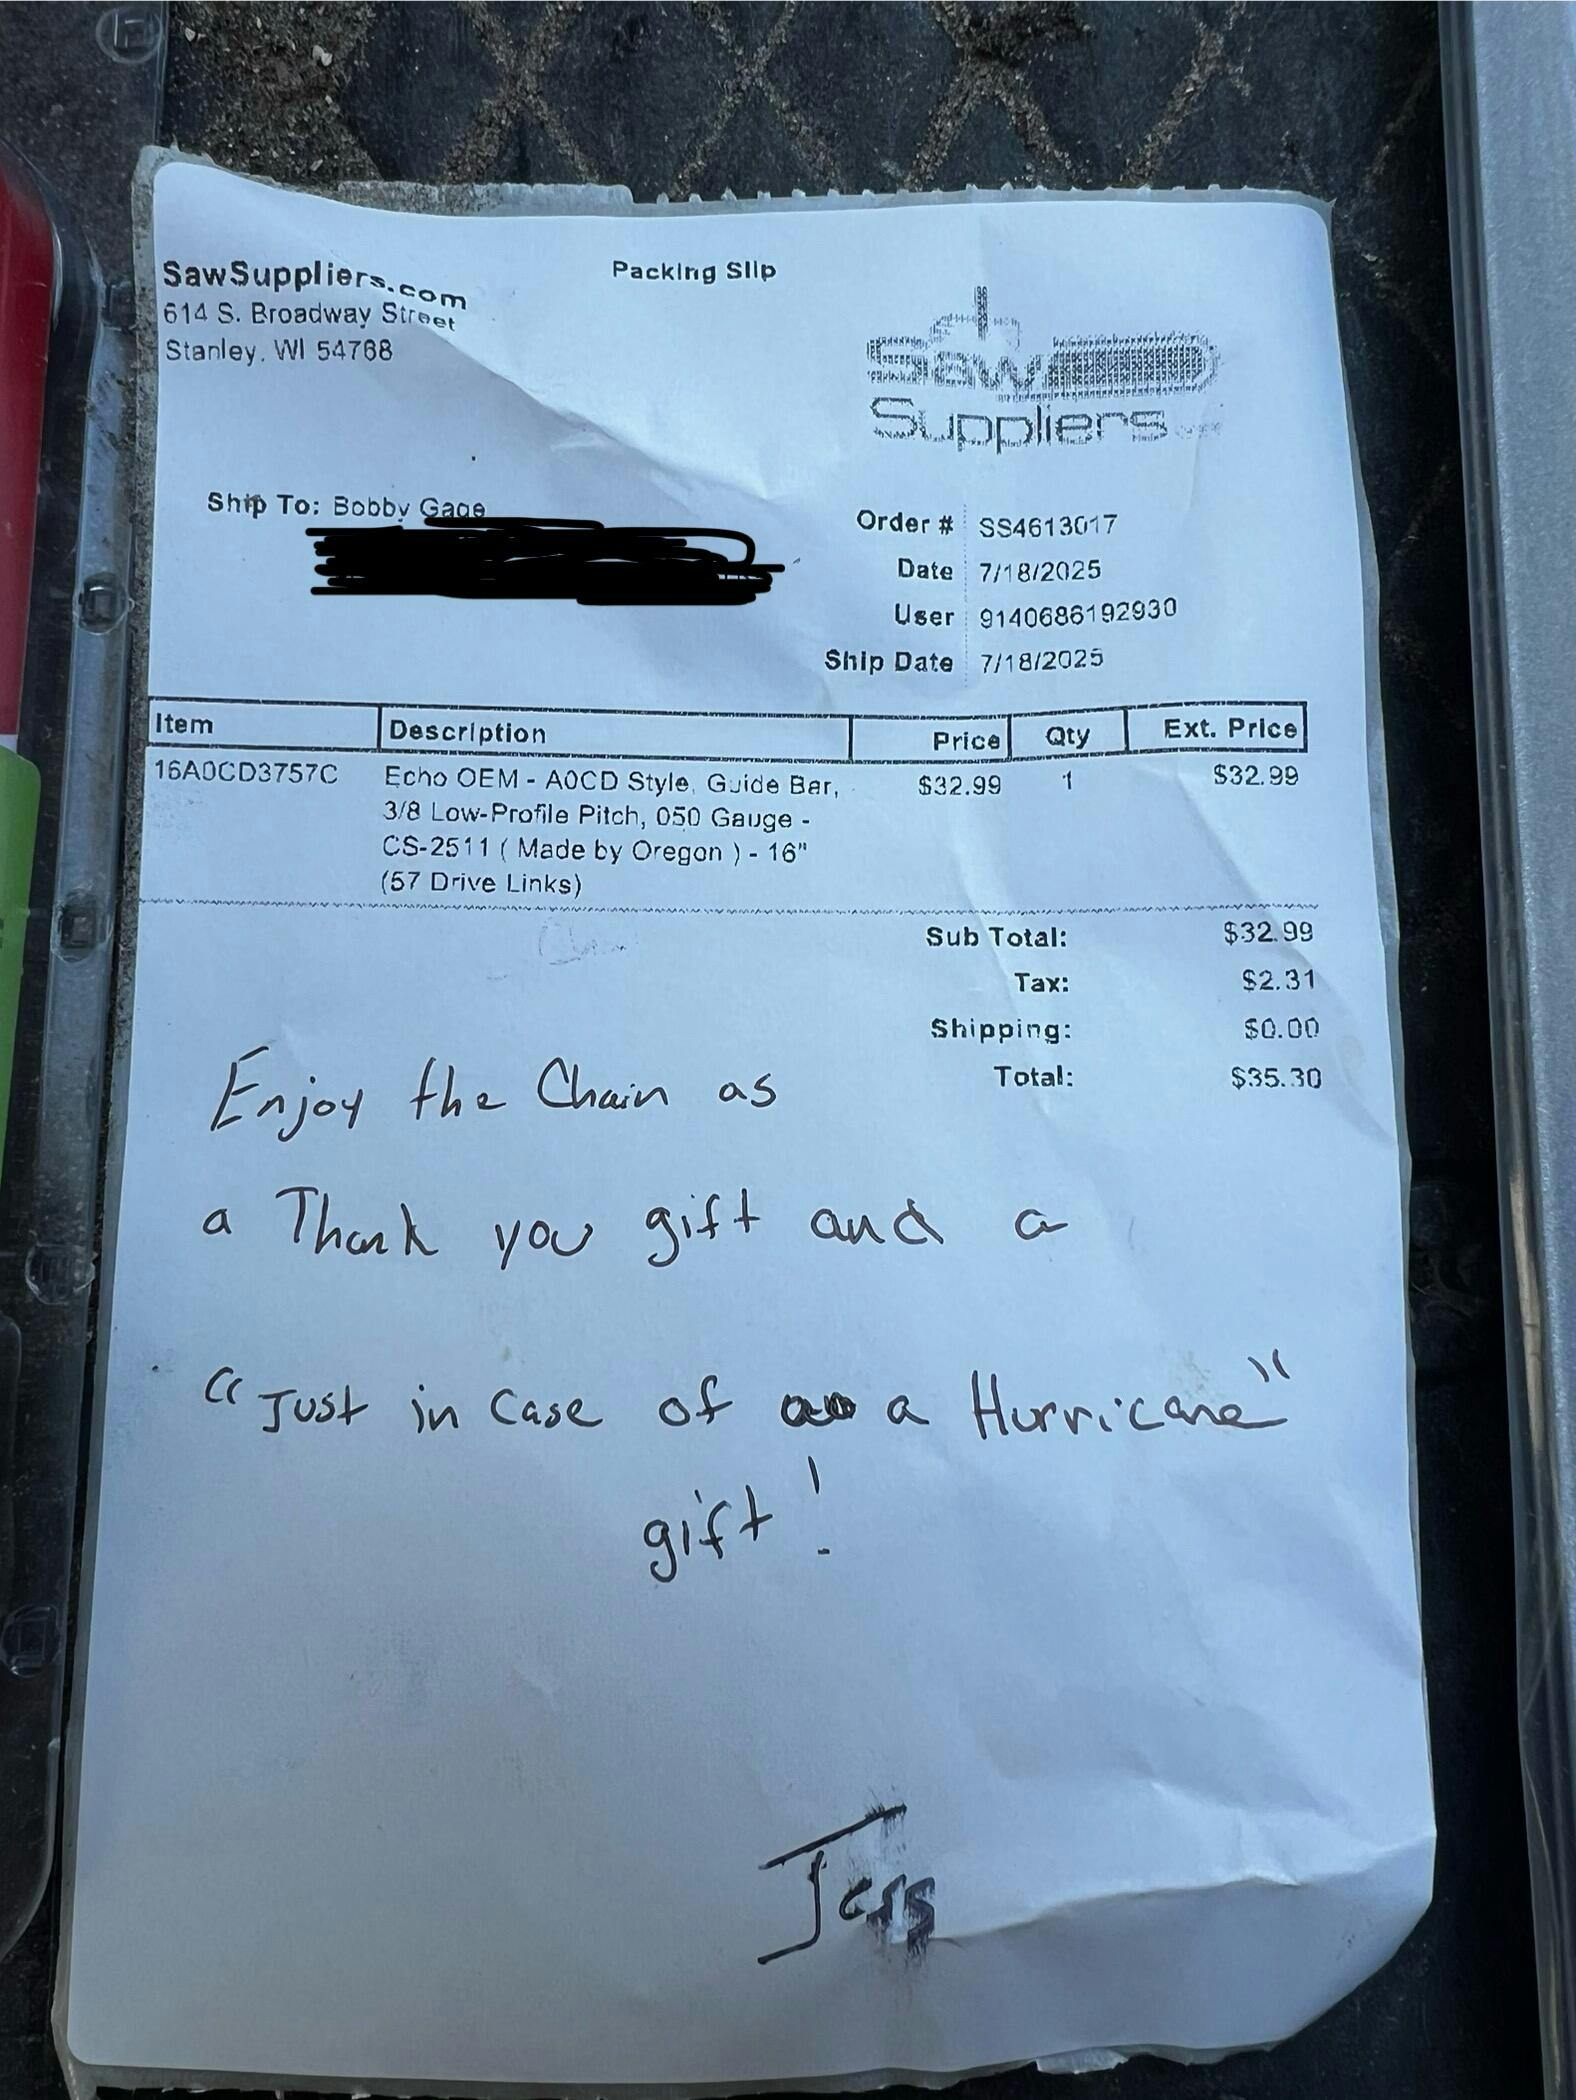 SawSuppliers.com
614 S. Broadway Street
Stanley, WI 54768
Packing Slip
Saw
Suppliers
Ship To: Bobby Gage
Order # SS4613017
Date 7/18/2025
User 9140686192930
Ship Date 7/18/2025
Item Description Price Qty Ext. Price
16A0CD3757C Echo OEM - A0CD Style, Guide Bar, $32.99 1 $32.99
3/8 Low-Profile Pitch, 050 Gauge -
CS-2511 ( Made by Oregon ) - 16"
(57 Drive Links)
Sub Total: $32.99
Tax: $2.31
Shipping: $0.00
Total: $35.30
Enjoy the Chain as
a Thank you gift and a
"Just in case of a Hurricane"
gift!
Jess